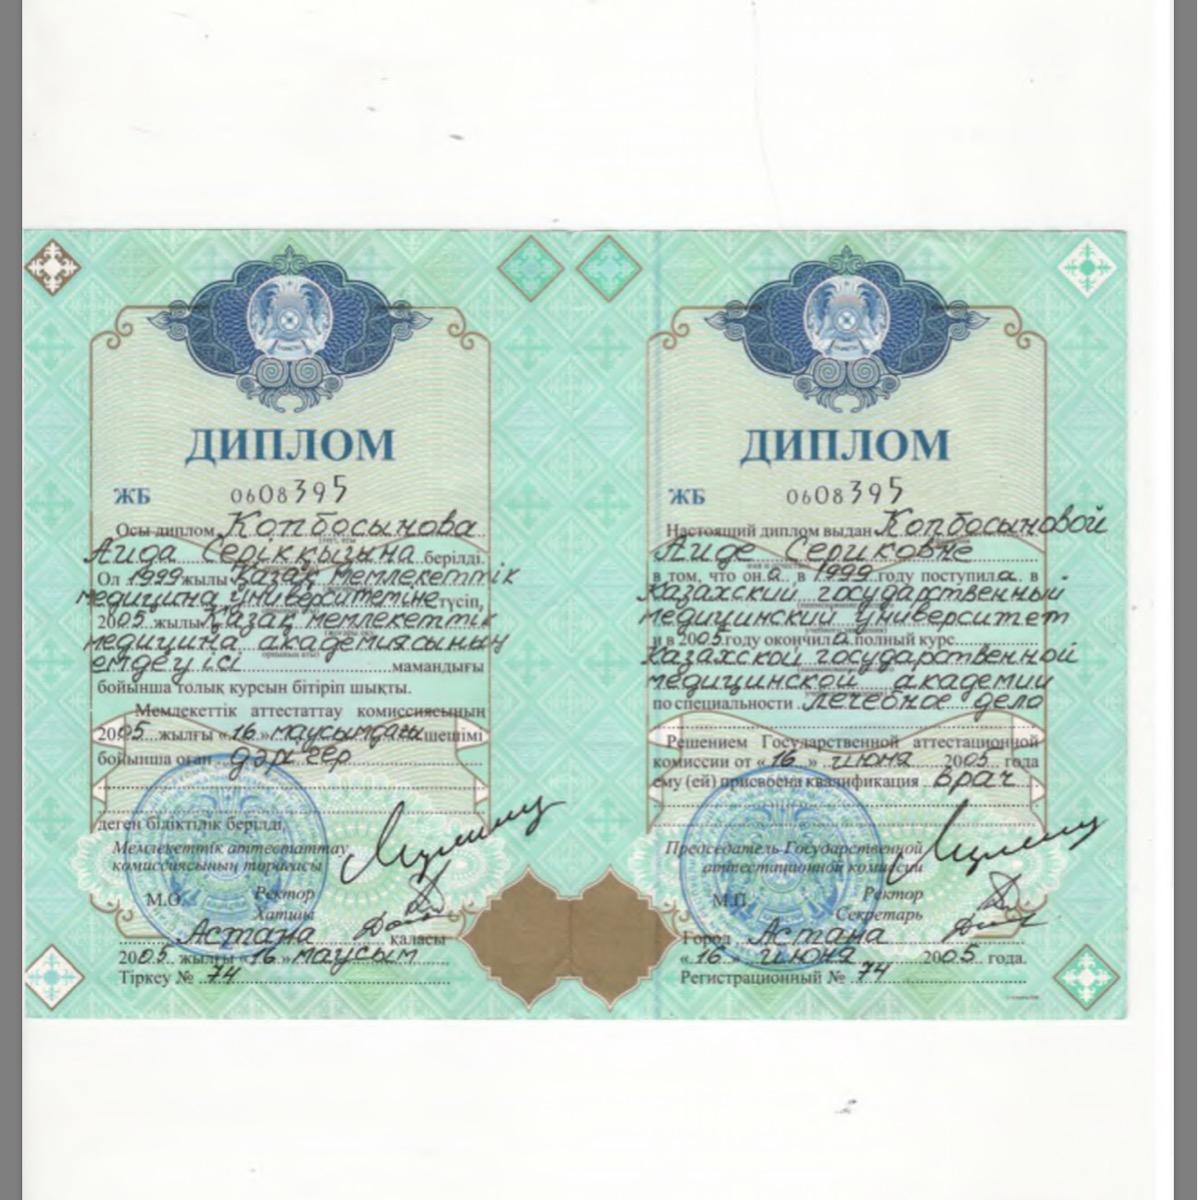 ДИПЛОМ
ЖБ 0608395
Осы диплом Копбосынова
Аида Серікқызына берілді.
Ол 1999 жылы Қазақ мемлекеттік
медицина университетіне түсіп,
2005 жылы Қазақ мемлекеттік
медицина академиясының
емдеу ісі мамандығы
бойынша толық курсын бітіріп шықты.
Мемлекеттік аттестаттау комиссиясының
2005 жылғы «16» маусымдағы шешімі
бойынша оған дәрігер
деген біліктілік берілді.
Мемлекеттік аттестаттау
комиссиясының төрағасы
М.О. Ректор
Хатшы
Астана қаласы
2005 жылғы «16» маусым
Тіркеу № 74
ДИПЛОМ
ЖБ 0608395
Настоящий диплом выдан Копбосыновой
Аиде Сериковне
в том, что он а в 1999 году поступил а в
Казахский государственный
медицинский университет
и в 2005 году окончил а полный курс
Казахской государственной
медицинской академии
по специальности лечебное дело
Решением Государственной аттестационной
комиссии от «16» июня 2005 года
ему (ей) присвоена квалификация врач
Председатель Государственной
аттестационной комиссии
М.П. Ректор
Секретарь
Город Астана
«16» июня 2005 года.
Регистрационный № 74